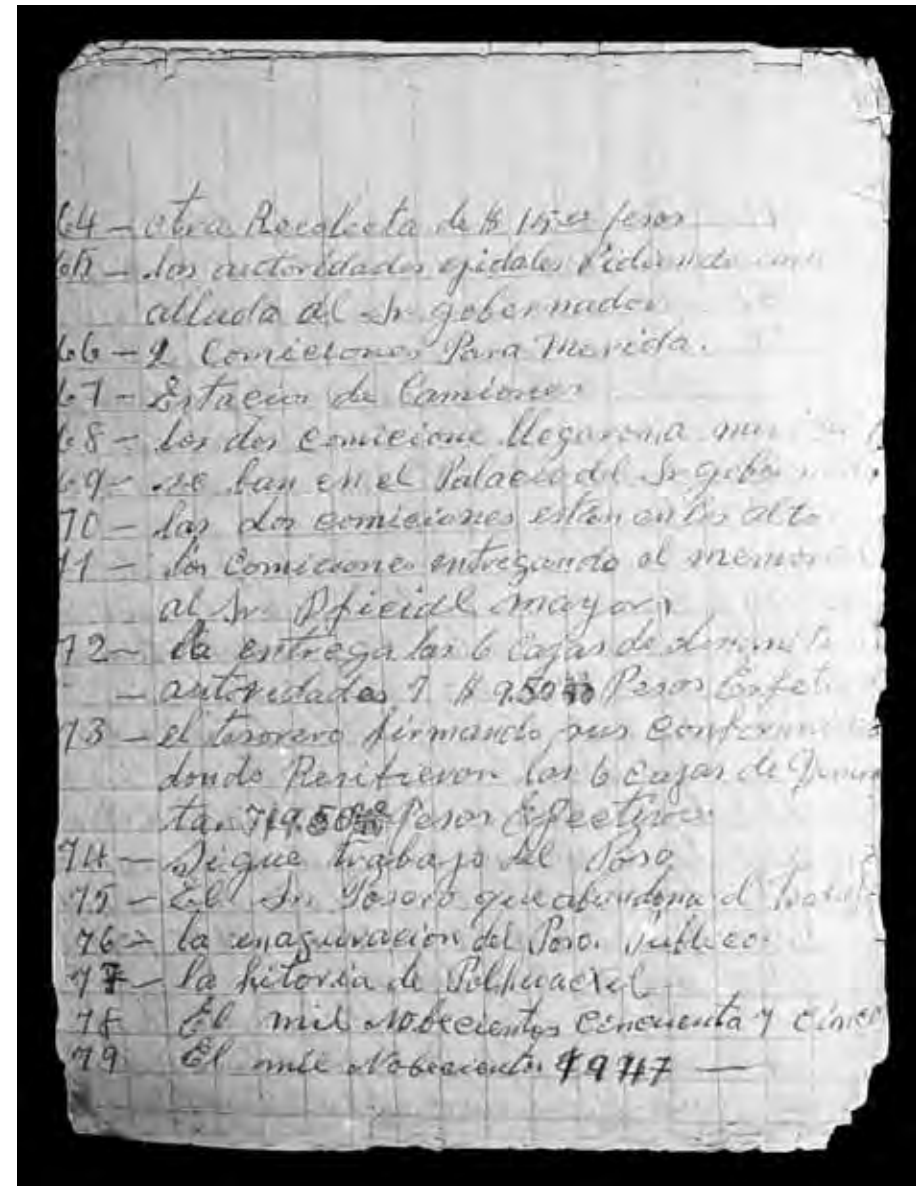 64 - otra Recolecta de $ 15.00 pesos
65 - las autoridades ejidales Pidiendo una
alluda al Sr. gobernador
66 - 2 Comiciones Para Merida.
67 - Estacion de Camiones
68 - los dos comicione llegaron a
69 - se ban en el Palacio del Sr gobernador
70 - las dos comiciones están en los alto
71 - los Comiciones entregando el memor
al Sr. Oficial mayor
72 - da entrega las 6 cajas de
- autoridades 7 $ 9.50 Pesos Enfet
73 - el tesorero firmando sus
donde Resitieron las 6 cajas de Dinami
ta. 7 Pesos Efectivos
74 - Sigue trabajo del Poso
75 - El Sr. Posero que abandona el
76 - la enaguracion del Poso. Publico
77 - la hitoria de
78 El mil Nobecientos Cincuenta y Cinco
79 El mil Nobecientos 1947 —